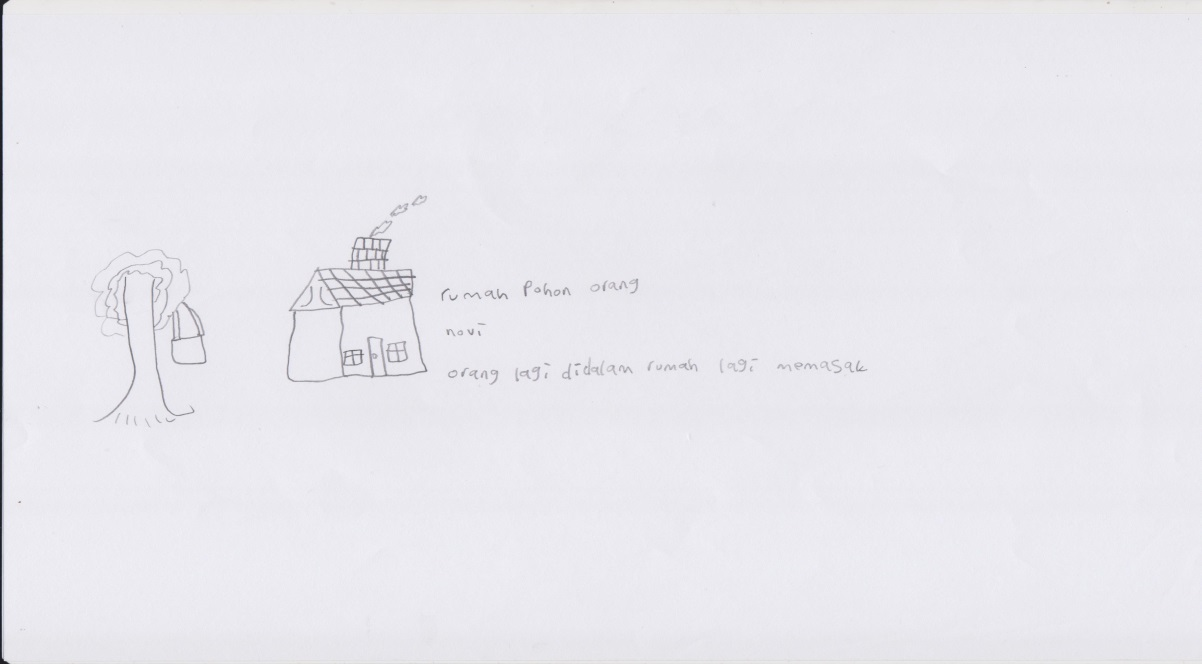 rumah Pohon orang
novi
orang lagi didalam rumah lagi memasak